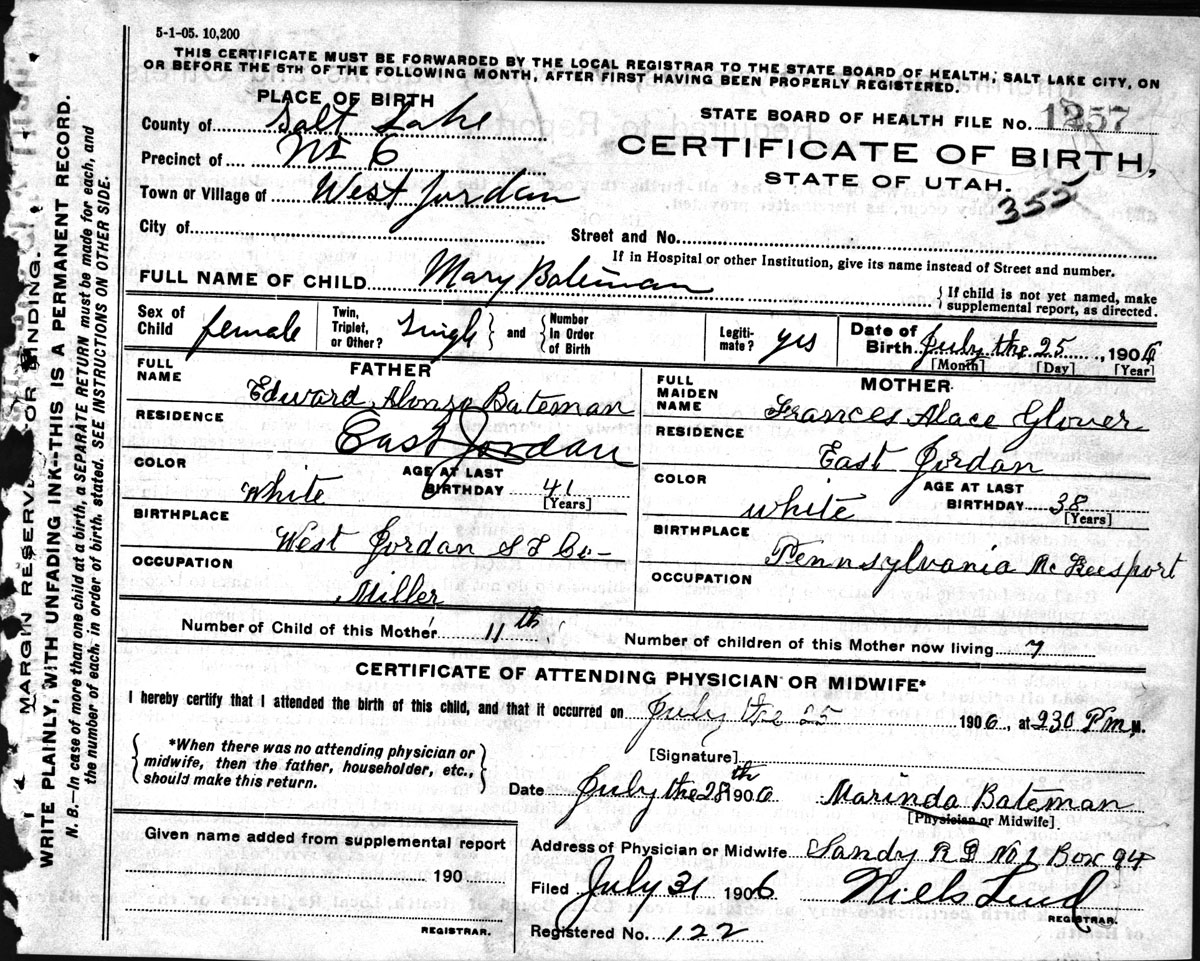 5-1-05. 10,200
THIS CERTIFICATE MUST BE FORWARDED BY THE LOCAL REGISTRAR TO THE STATE BOARD OF HEALTH, SALT LAKE CITY, ON
OR BEFORE THE 5TH OF THE FOLLOWING MONTH, AFTER FIRST HAVING BEEN PROPERLY REGISTERED.
PLACE OF BIRTH
County of Salt Lake
Precinct of No 6
Town or Village of West Jordan
City of
STATE BOARD OF HEALTH FILE No. 1257
CERTIFICATE OF BIRTH,
STATE OF UTAH.
355
Street and No.
If in Hospital or other Institution, give its name instead of Street and number.
FULL NAME OF CHILD Mary Bateman
{ If child is not yet named, make
supplemental report, as directed.
Sex of Child female
Twin, Triplet, or Other? Single } and { Number In Order of Birth
Legiti-mate? yes
Date of Birth July the 25, 1906
[Month] [Day] [Year]
FATHER
FULL NAME Edward Alonzo Bateman
RESIDENCE East Jordan
COLOR White AGE AT LAST BIRTHDAY 41
[Years]
BIRTHPLACE West Jordan S L Co-
OCCUPATION Miller
MOTHER
FULL MAIDEN NAME Frances Alace Glover
RESIDENCE East Jordan
COLOR white AGE AT LAST BIRTHDAY 38
[Years]
BIRTHPLACE Pennsylvania McKeesport
OCCUPATION
Number of Child of this Mother 11th Number of children of this Mother now living 7
CERTIFICATE OF ATTENDING PHYSICIAN OR MIDWIFE*
I hereby certify that I attended the birth of this child, and that it occurred on July the 25 1906, at 230 P m M.
{ *When there was no attending physician or
midwife, then the father, householder, etc.,
should make this return. }
[Signature]
Date July the 28th 1906 Marinda Bateman
[Physician or Midwife]
Given name added from supplemental report
190
REGISTRAR.
Address of Physician or Midwife Sandy R D No 1 Box 94
Filed July 31 1906 Niels Lind
REGISTRAR.
Registered No. 122
MARGIN RESERV OR BINDING.
WRITE PLAINLY, WITH UNFADING INK--THIS IS A PERMANENT RECORD.
N. B.—In case of more than one child at a birth, a SEPARATE RETURN must be made for each, and
the number of each, in order of birth, stated. SEE INSTRUCTIONS ON OTHER SIDE.